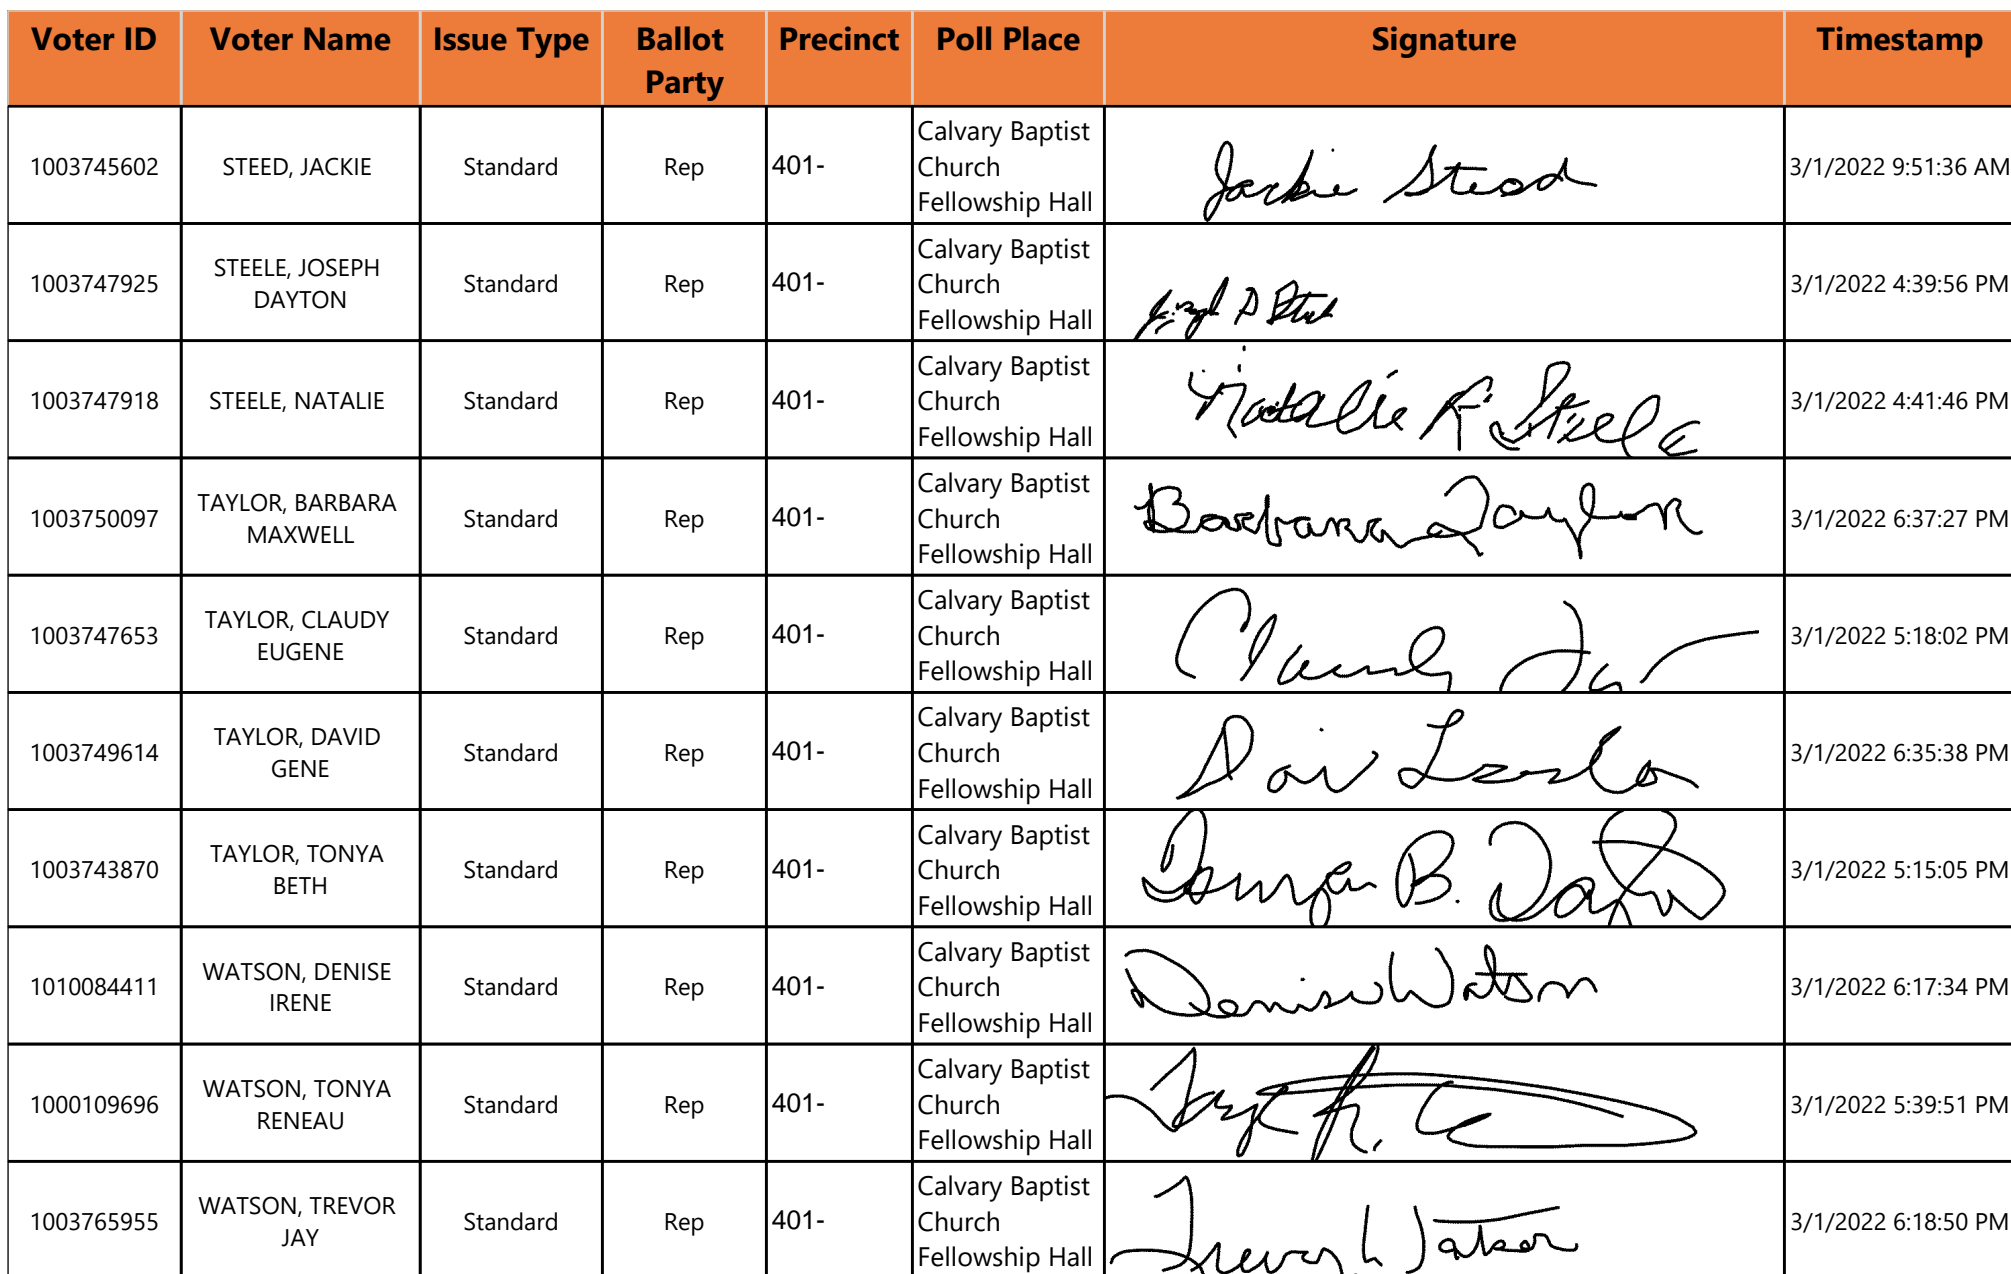 Voter ID Voter Name Issue Type Ballot Party Precinct Poll Place Signature Timestamp
1003745602 STEED, JACKIE Standard Rep 401- Calvary Baptist Church Fellowship Hall Jackie Steed 3/1/2022 9:51:36 AM
1003747925 STEELE, JOSEPH DAYTON Standard Rep 401- Calvary Baptist Church Fellowship Hall 3/1/2022 4:39:56 PM
1003747918 STEELE, NATALIE Standard Rep 401- Calvary Baptist Church Fellowship Hall Natalie R Steele 3/1/2022 4:41:46 PM
1003750097 TAYLOR, BARBARA MAXWELL Standard Rep 401- Calvary Baptist Church Fellowship Hall Barbara Taylor 3/1/2022 6:37:27 PM
1003747653 TAYLOR, CLAUDY EUGENE Standard Rep 401- Calvary Baptist Church Fellowship Hall Claudy 3/1/2022 5:18:02 PM
1003749614 TAYLOR, DAVID GENE Standard Rep 401- Calvary Baptist Church Fellowship Hall 3/1/2022 6:35:38 PM
1003743870 TAYLOR, TONYA BETH Standard Rep 401- Calvary Baptist Church Fellowship Hall B. 3/1/2022 5:15:05 PM
1010084411 WATSON, DENISE IRENE Standard Rep 401- Calvary Baptist Church Fellowship Hall Denise Watson 3/1/2022 6:17:34 PM
1000109696 WATSON, TONYA RENEAU Standard Rep 401- Calvary Baptist Church Fellowship Hall 3/1/2022 5:39:51 PM
1003765955 WATSON, TREVOR JAY Standard Rep 401- Calvary Baptist Church Fellowship Hall Trevor Watson 3/1/2022 6:18:50 PM